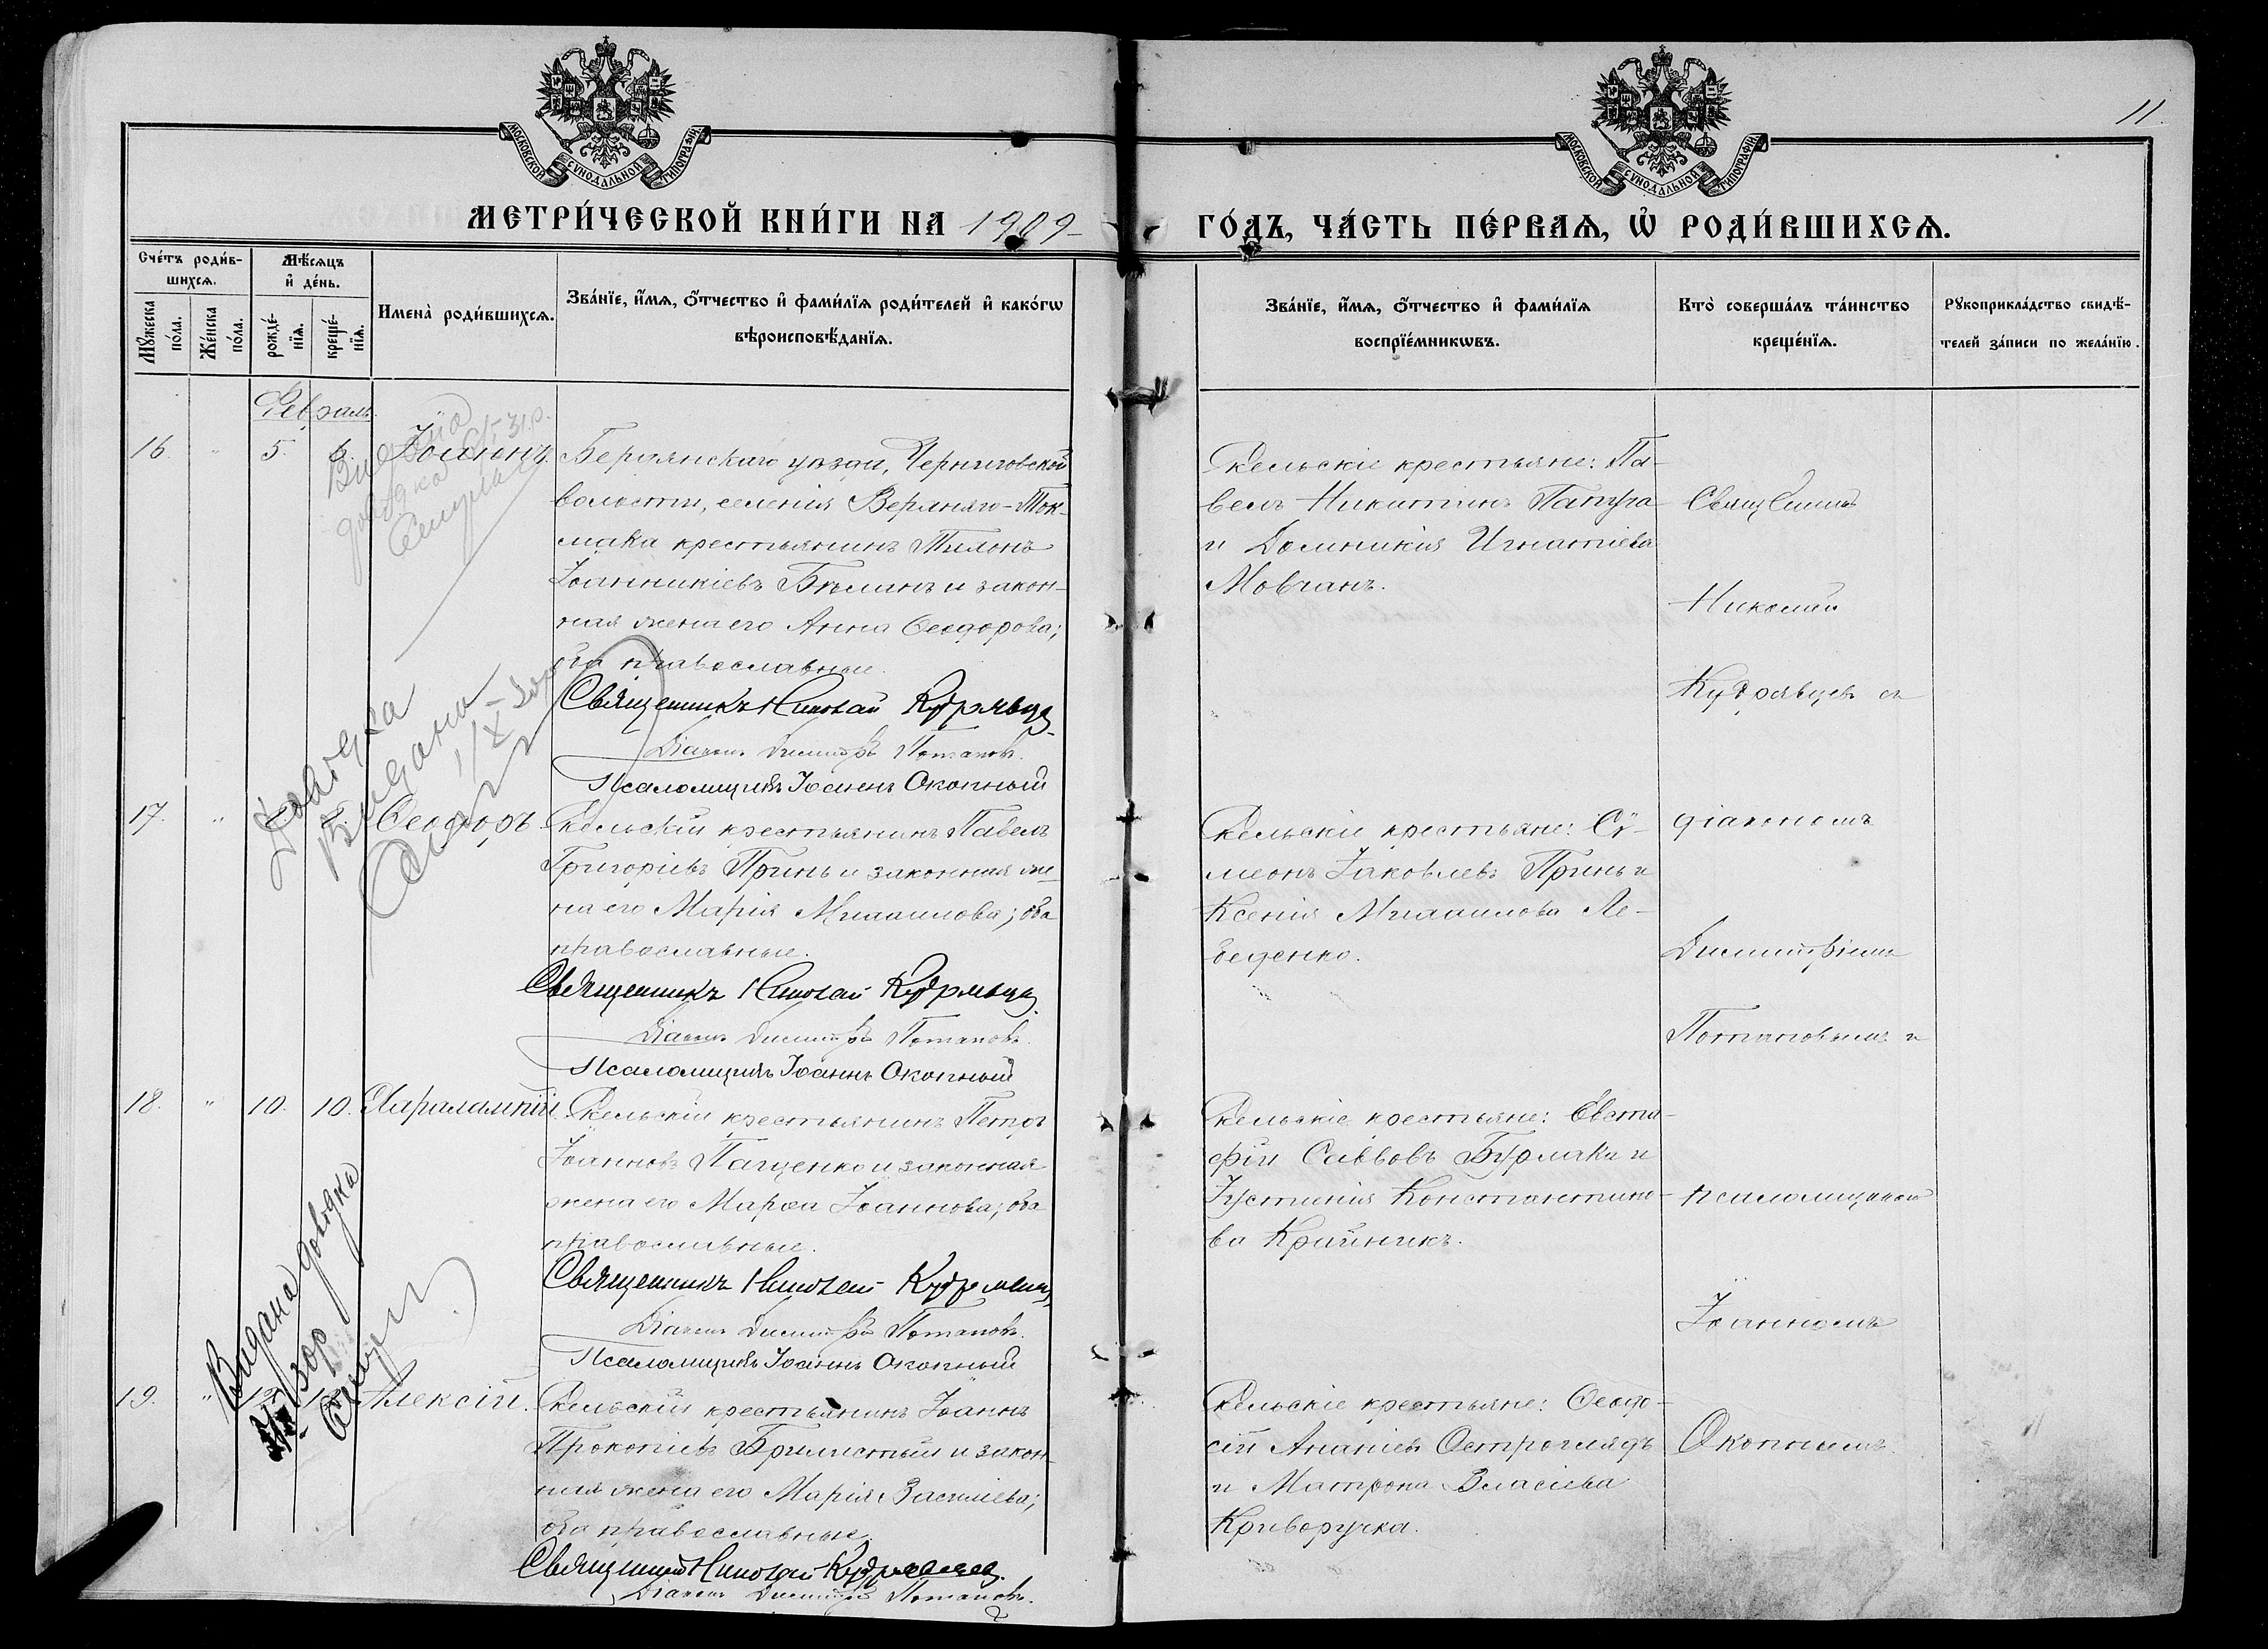 МОСКОВСКОЙ СУНОДАЛЬНОЙ ТИПОГРАФІИ
МОСКОВСКОЙ СУНОДАЛЬНОЙ ТИПОГРАФІИ
11.
МЕТРИ́ЧЕСКОЙ КНИ́ГИ НА 1909
ГО́ДЪ, ЧА́СТЬ ПЕ́РВАѦ, Ѡ҆ РОДИ́ВШИХСѦ.
Сче́тъ роди́в-
шихсѧ.
Мꙋжеска по́ла.
Же́нска по́ла.
Мѣ́сѧцъ
и҆ де́нь.
рожде́-
нїѧ.
креще́-
нїѧ.
Имена̀ роди́вшихсѧ.
Зва́нїе, и҆́мѧ, ѻ҆́тчество и҆ фами́лїѧ роди́телей и҆ како́гѡ
вѣроисповѣ́данїѧ.
Зва́нїе, и҆́мѧ, ѻ҆́тчество и҆ фами́лїѧ
воспрїе́мникѡвъ.
Кто̀ соверша́лъ та́инство
креще́нїѧ.
Рꙋкоприкла́дство свидѣ́-
телей за́писи по жела́нїю.
Февраль.
16. " 5. 6. Іоаннъ.
Бердянскаго уѣзда, Черниговской
волости, селенія Верхняго-Ток-
мака крестьянинъ Тихонъ
Іоанникіевъ Бѣланъ и закон-
ная жена его Анна Ѳеодорова;
оба православные.
Священникъ Николай Кудрявцев
Діаконъ Димитрій Потаповъ.
Псаломщикъ Іоаннъ Окопный
Рельскіе крестьяне: Па-
велъ Никитинъ Папуга
и Домникія Игнатіева
Мовчанъ.
Видано
довідка
Довідка
Видана
17. " Ѳеодоръ.
Рельскій крестьянинъ Павелъ
Григоріевъ Принь и законная же-
на его Марія Михаилова; оба
православные.
Священникъ Николай Кудрявцев
Діаконъ Димитрій Потаповъ.
Псаломщикъ Іоаннъ Окопный
Рельскіе крестьяне: Сѵ-
меонъ Іаковлевъ Принь и
Ксенія Михаилова Ле-
беденко.
18. " 10. 10. Харалампій.
Рельскій крестьянинъ Петръ
Іоанновъ Пащенко и законная
жена его Марѳа Іоаннова; оба
православные.
Священникъ Николай Кудрявцев
Діаконъ Димитрій Потаповъ.
Псаломщикъ Іоаннъ Окопный
Рельскіе крестьяне: Евста-
фій Саввовъ Бурлака и
Іустинія Константино-
ва Крайникъ.
Видана довідка
19. " 12. Алексій.
Рельскій крестьянинъ Іоаннъ
Прокопіевъ Брилистый и закон-
ная жена его Марія Василіева;
оба православные.
Священникъ Николай Кудрявцев
Діаконъ Димитрій Потаповъ.
Рельскіе крестьяне: Ѳеодо-
сій Ананіевъ Остроглядъ
и Матрона Власіева
Криворучка.
Священникъ
Николай
Кудрявцевъ съ
діакономъ
Димитріемъ
Потаповымъ и
псаломщикомъ
Іоанномъ
Окопнымъ.